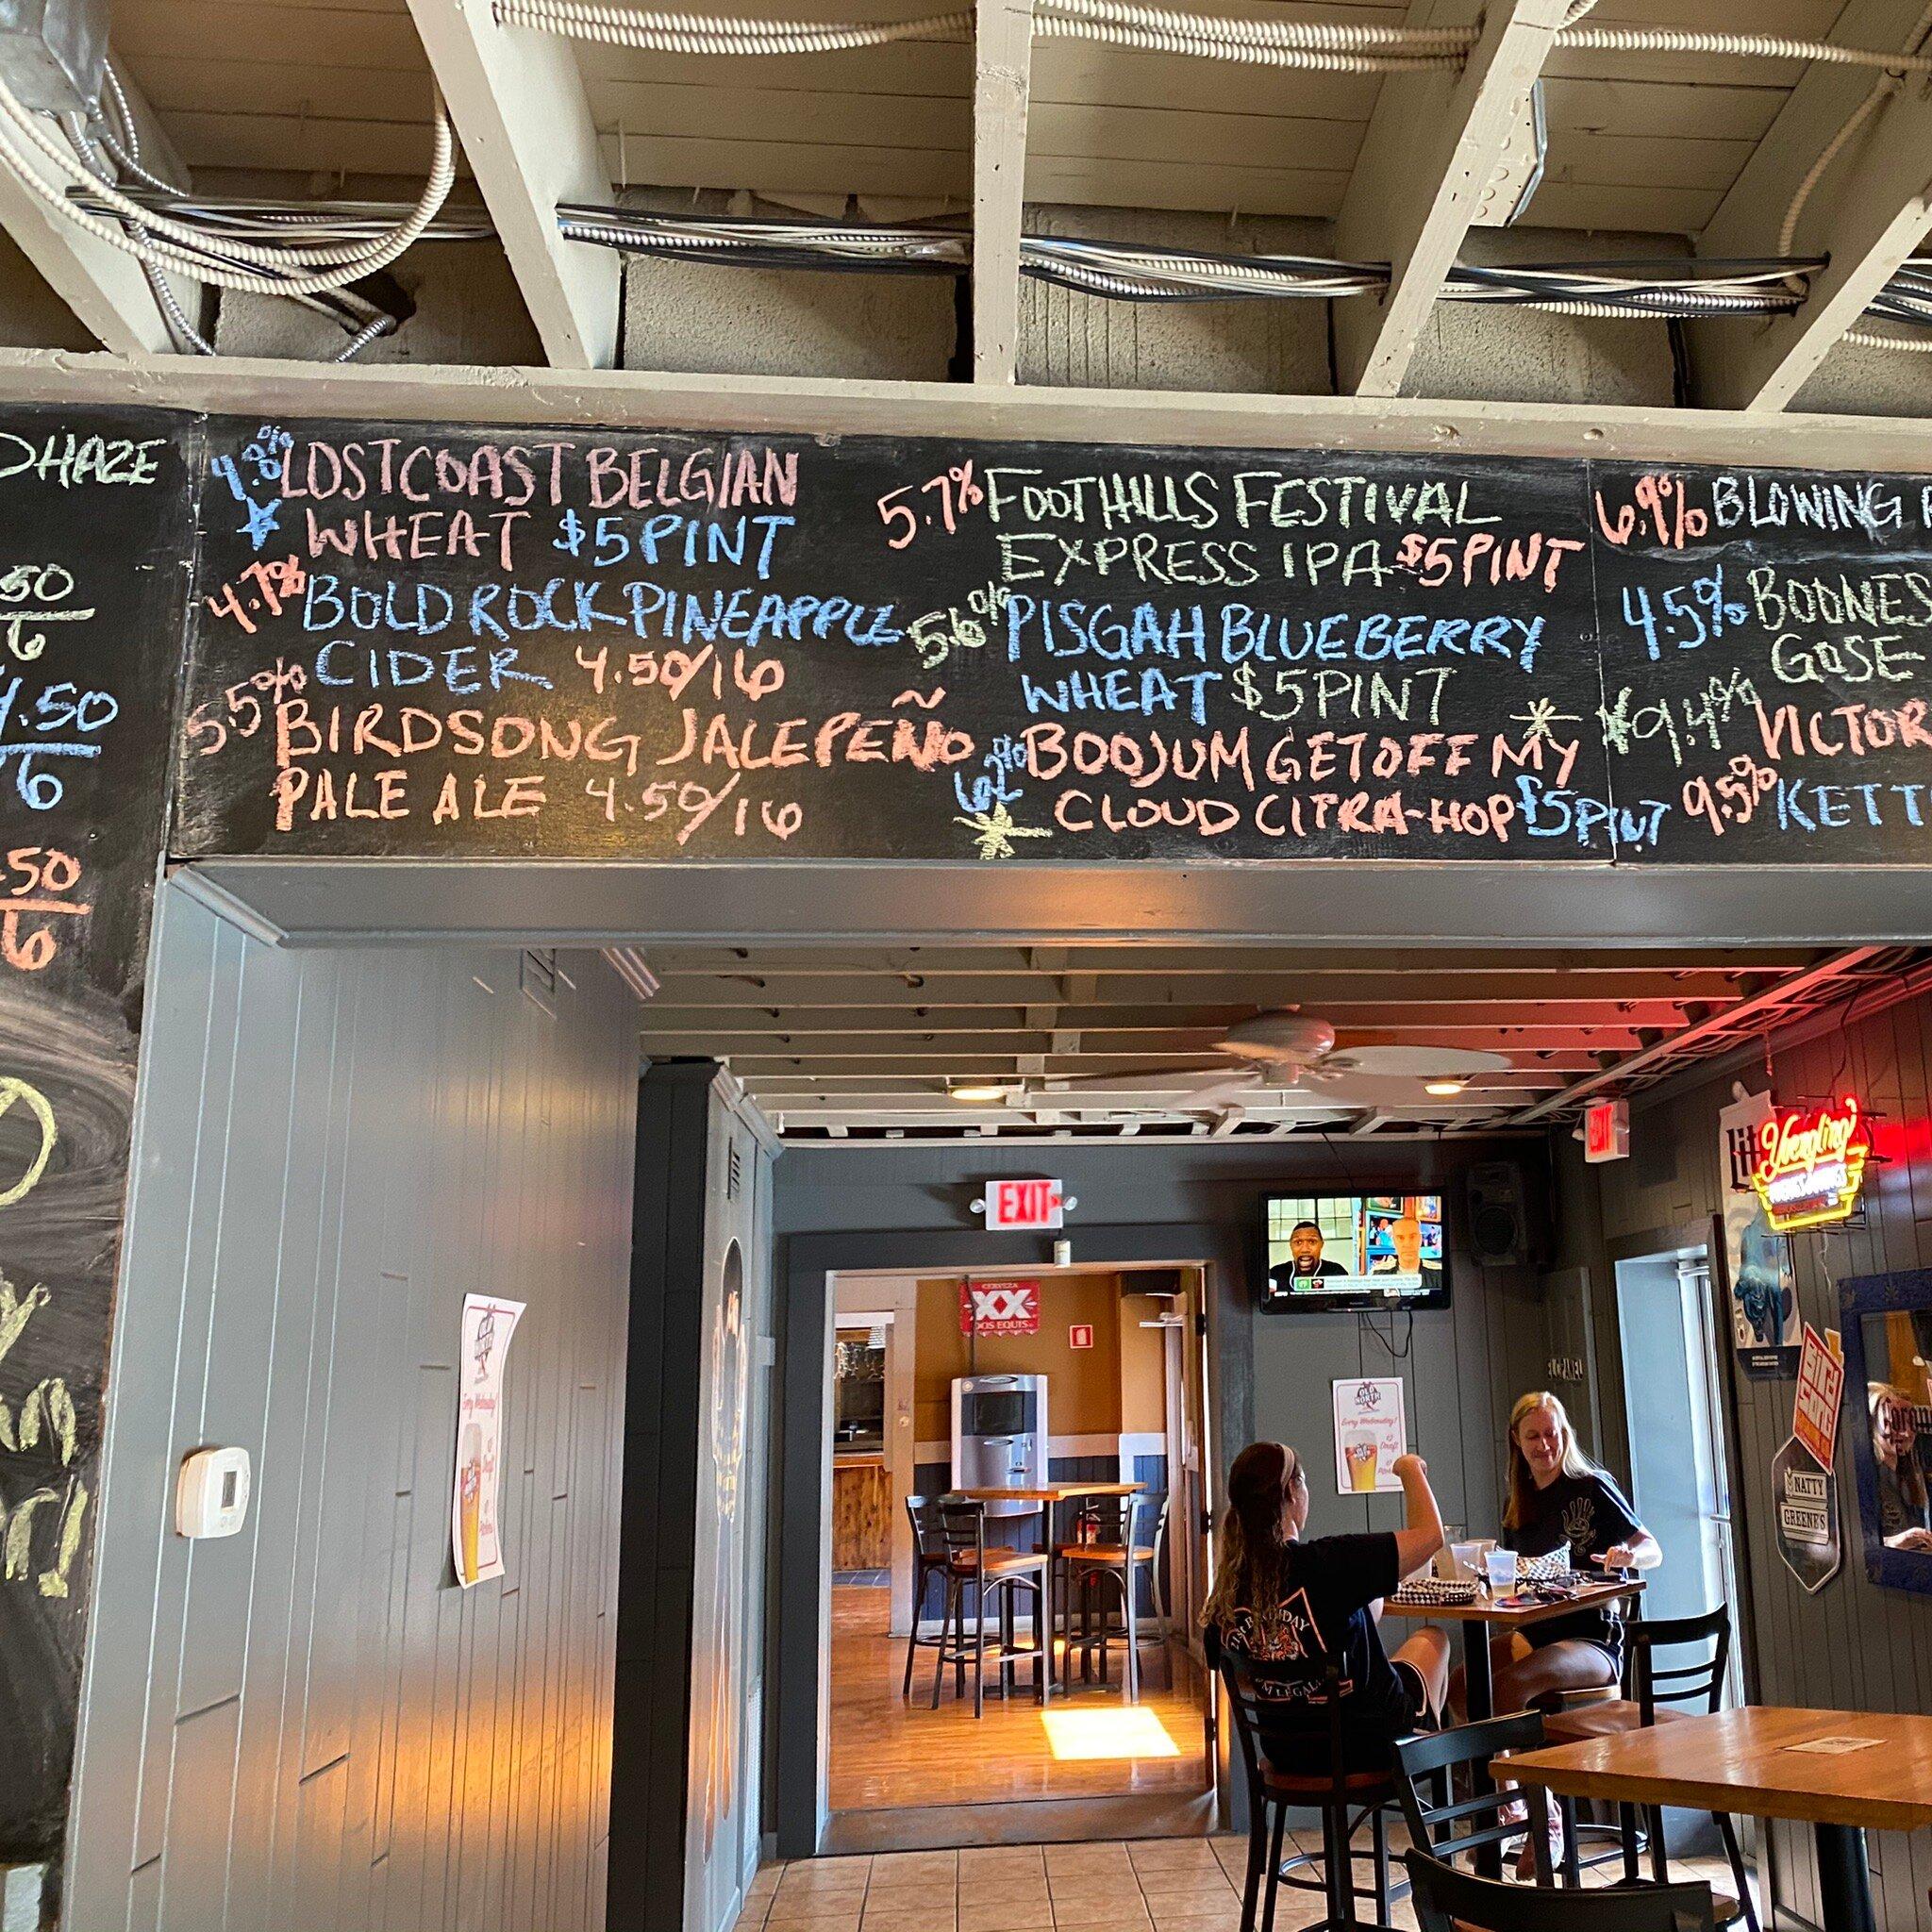 HAZE
.50
6
4.50
6
.50
6
4.8% LOST COAST BELGIAN
WHEAT $5 PINT
4.7% BOLD ROCK PINEAPPLE
CIDER 4.50/16
5.5% BIRDSONG JALEPEÑO
PALE ALE 4.50/16
5.7% FOOTHILLS FESTIVAL
EXPRESS IPA $5 PINT
5.6% PISGAH BLUEBERRY
WHEAT $5 PINT
6.2% BOOJUM GET OFF MY
CLOUD CITRA-HOP $5 PINT
6.9% BLOWING
4.5% BODNES
GOSE
9.4% VICTOR
9.5% KETT
EXIT
EXIT
Yuengling
CERVEZA
XX
DOS EQUIS
OLD
NORTH
Every Wednesday!
$2
Draft
Every Wednesday!
21st BIRTHDAY
I'M LEGAL
NATTY
GREENE'S
Corona